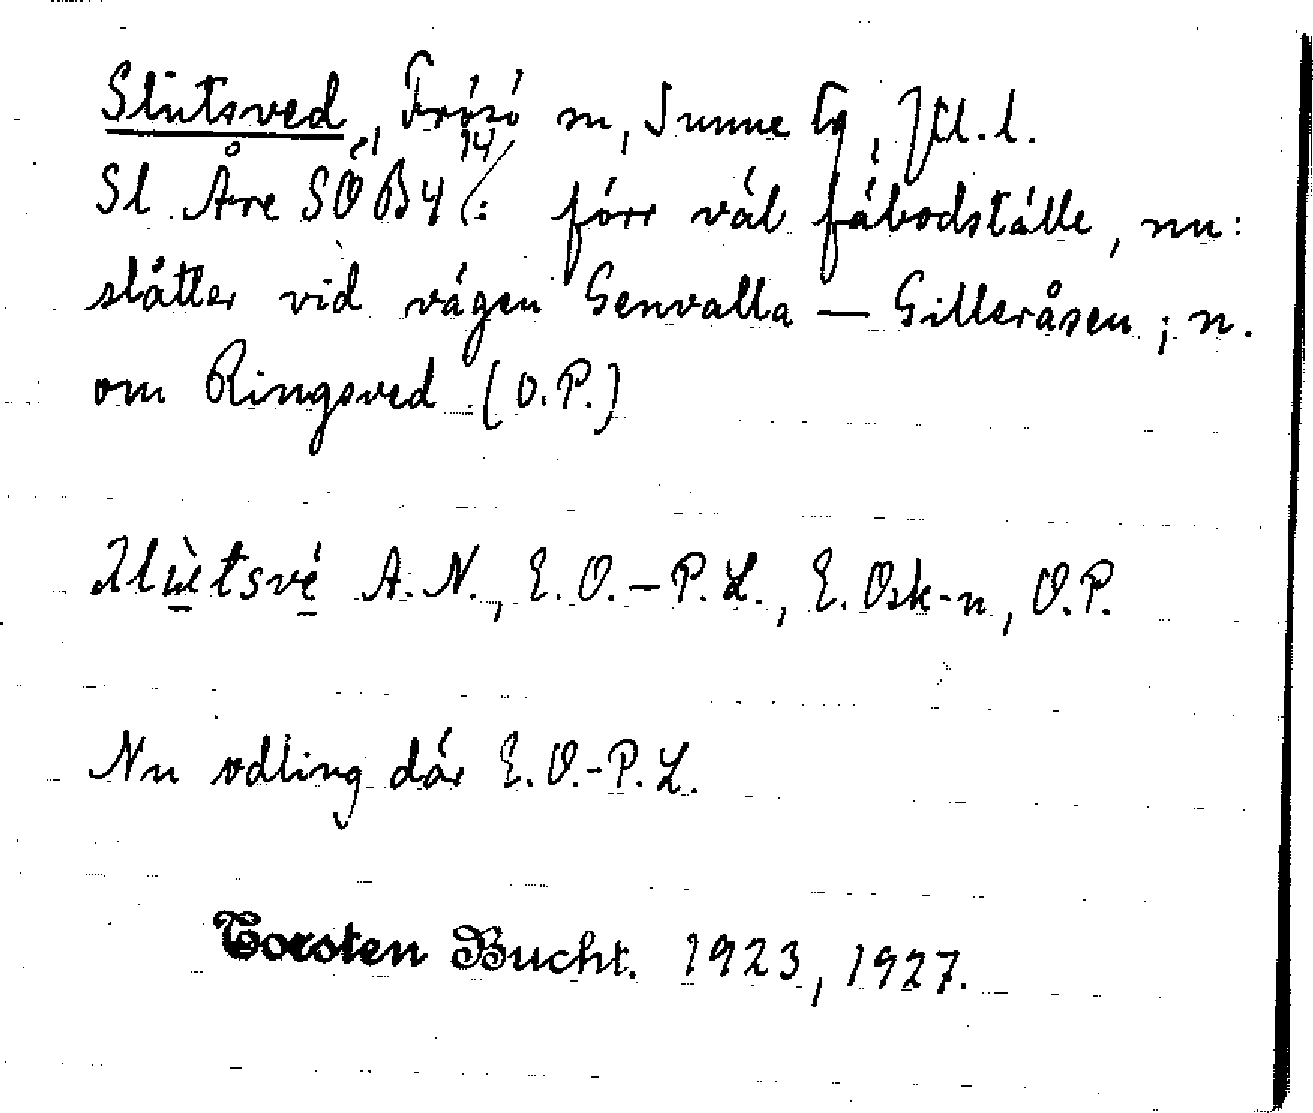 Slutsved, Frösö sn, Sunne tg, Jtl. l.
Sl. Åre SÖ B4 14/: förr väl fäbodställe, nu:
slåtter vid vägen Genvalla — Gilleråsen; n.
om Ringsved (O.P.)
A.N., E.O.–P.L., E.Osk-n, O.P.
Nu odling där E.O.-P.L.
Torsten Bucht. 1923, 1927.